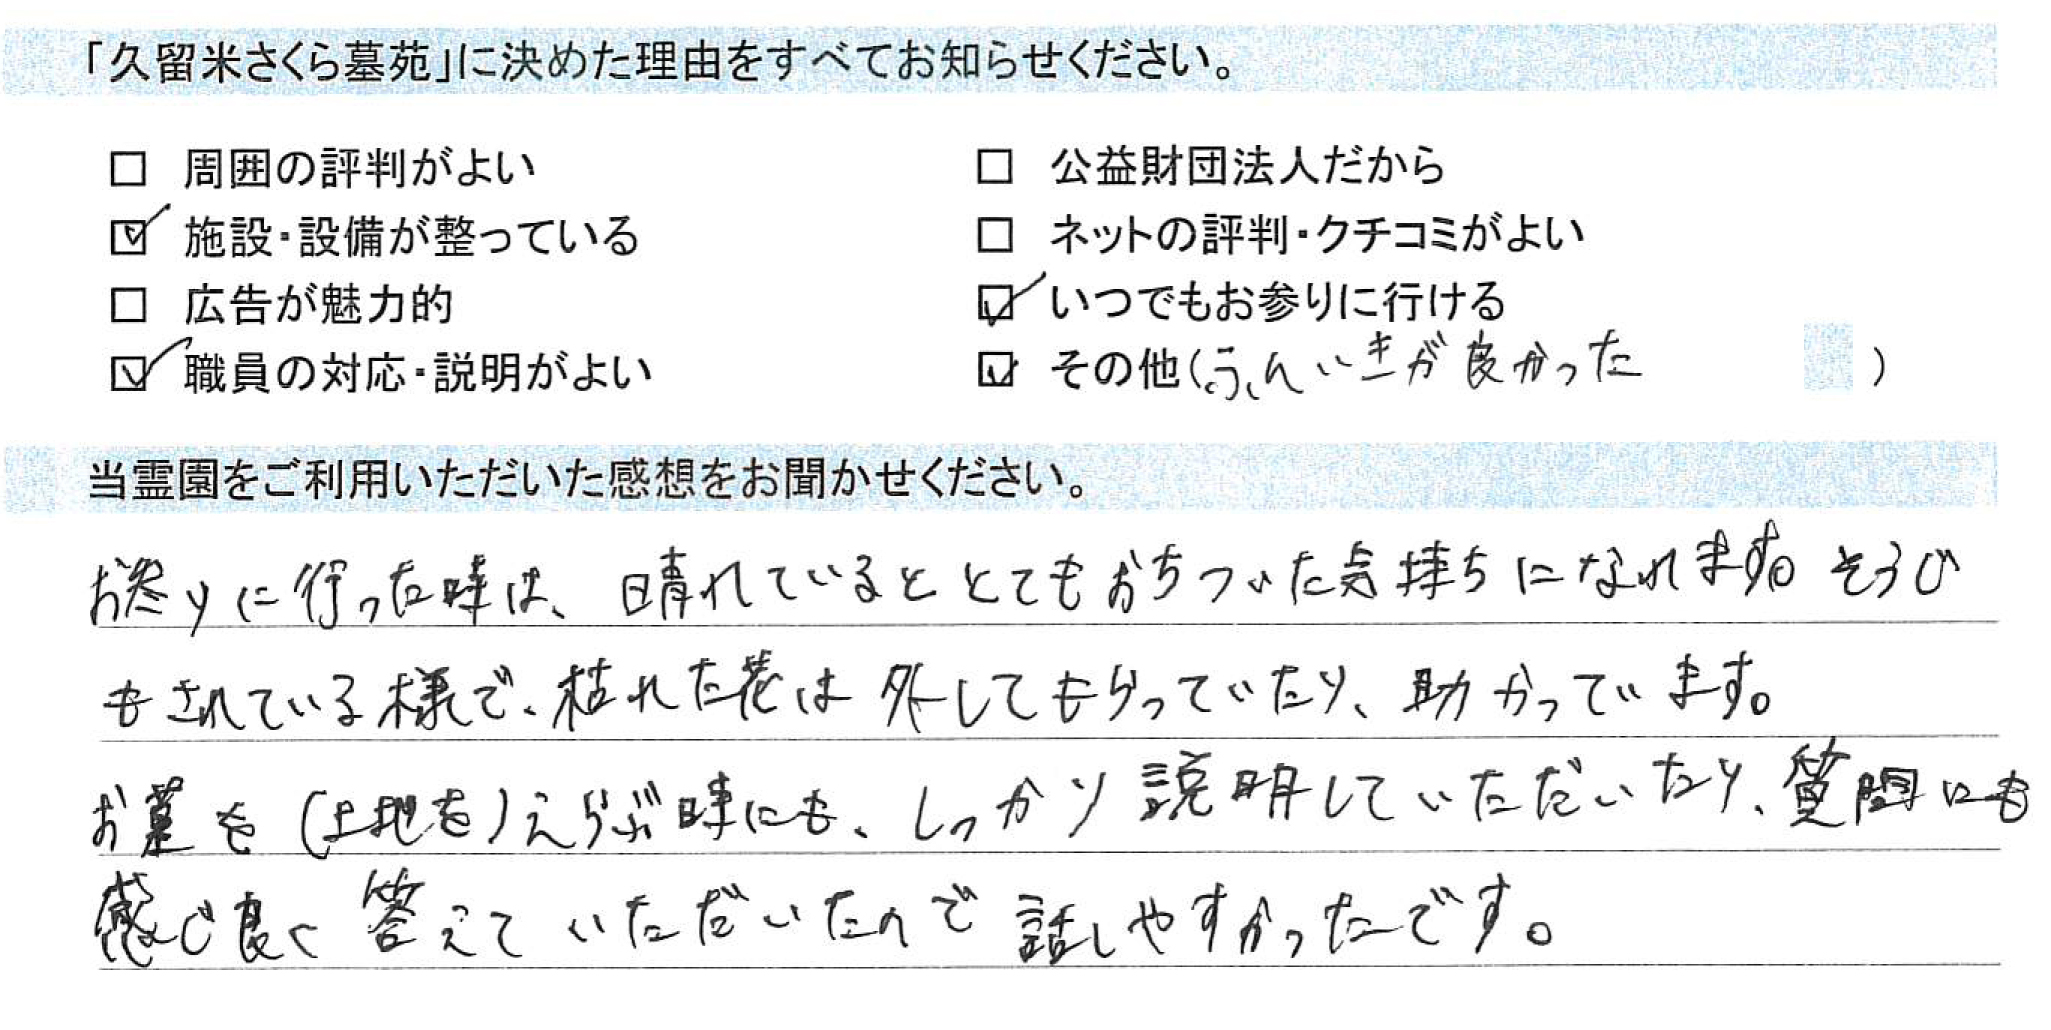 「久留米さくら墓苑」に決めた理由をすべてお知らせください。
□ 周囲の評判がよい
□ 公益財団法人だから
☑ 施設・設備が整っている
□ ネットの評判・クチコミがよい
□ 広告が魅力的
☑ いつでもお参りに行ける
☑ 職員の対応・説明がよい
☑ その他(ふんいきが良かった )
当霊園をご利用いただいた感想をお聞かせください。
お参りに行った時は、晴れているととてもおちついた気持ちになれます。そうじ
もされている様で、枯れた花は外してもらっていたり、助かっています。
お墓を(土地を)えらぶ時にも、しっかり説明していただいたり、質問にも
感じ良く答えていただいたので話しやすかったです。